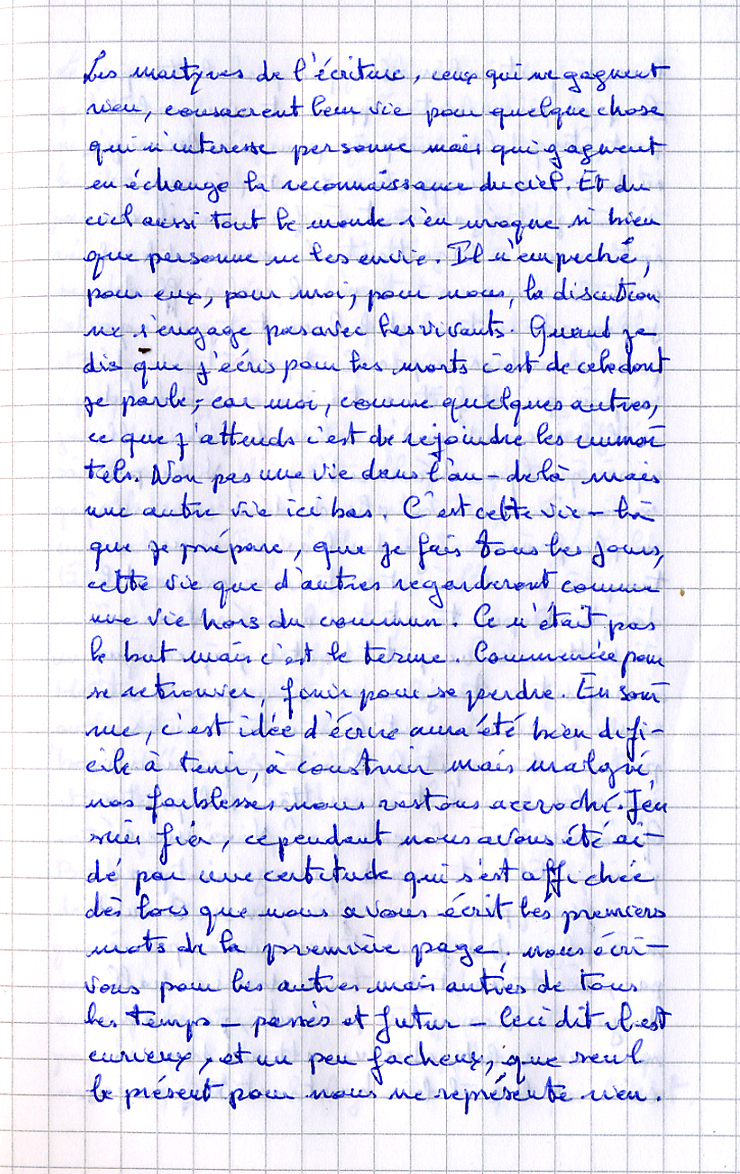 Les martyres de l'écriture, ceux qui ne gagnent
rien, consacrent leur vie pour quelque chose
qui n'interesse personne mais qui gagnent
en échange la reconnaissance du ciel. Et du
ciel aussi tout le monde s'en moque si bien
que personne ne les envie. Il n'empeche,
pour eux, pour moi, pour nous, la discution
ne s'engage pas avec les vivants. Quand je
dis que j'écris pour les morts c'est de cele dont
je parle; car moi, comme quelques autres,
ce que j'attends c'est de rejoindre les immor
tels. Non pas une vie dans l'au-delà mais
une autre vie ici bas. C'est cette vie-là
que je prépare, que je fais tous les jours,
cette vie que d'autres regarderont comme
une vie hors du commun. Ce n'était pas
le but mais c'est le terme. Commencée pour
se retrouver, finir pour se perdre. En som
me, c'est idée d'écrire aura été bien difi-
cile à tenir, à construir mais malgré,
nos faiblesses nous restons accroché. J'en
suis fier, cependant nous avons été ai-
dé par une certitude qui s'est affichée
dès lors que nous avons écrit les premiers
mots de la première page. nous écri-
vons pour les autres mais autres de tous
les temps - passés et futur - Ceci dit il est
curieux, et un peu facheux, que seul
le présent pour nous ne représente rien.